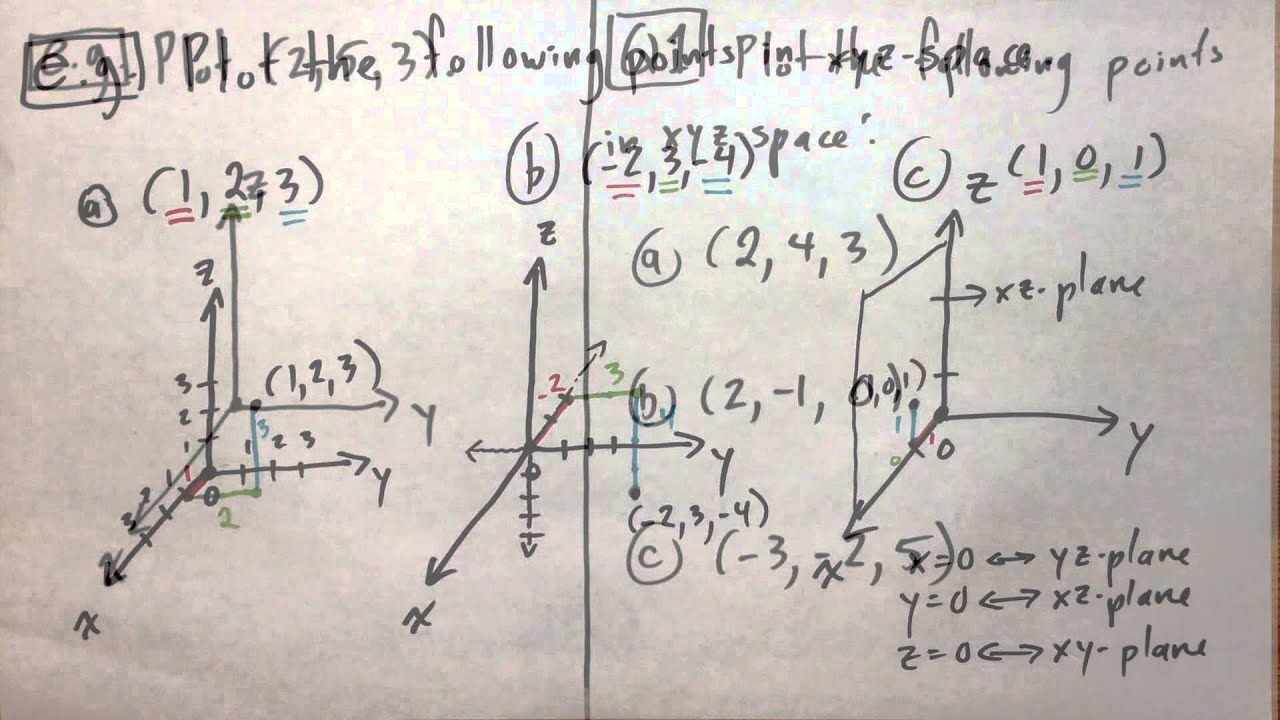 e.g. Plot the following points in xyz-space.
Plot (2, 5, 3)
Plot the following points
in xyz space:
a (1, 2, 3)
b (-2, 3, -4)
c (1, 0, 1)
a (2, 4, 3)
b (2, -1,
c (-3, -2, 5)
z
z
z
xz-plane
3
2
1
(1, 2, 3)
3
1 2 3
y
y
0
1
2
3
2
x
-2
3
y
0
(-2, 3, -4)
x
1
1
0
0
y
x
x=0 ↔ yz-plane
y=0 ↔ xz-plane
z=0 ↔ xy-plane